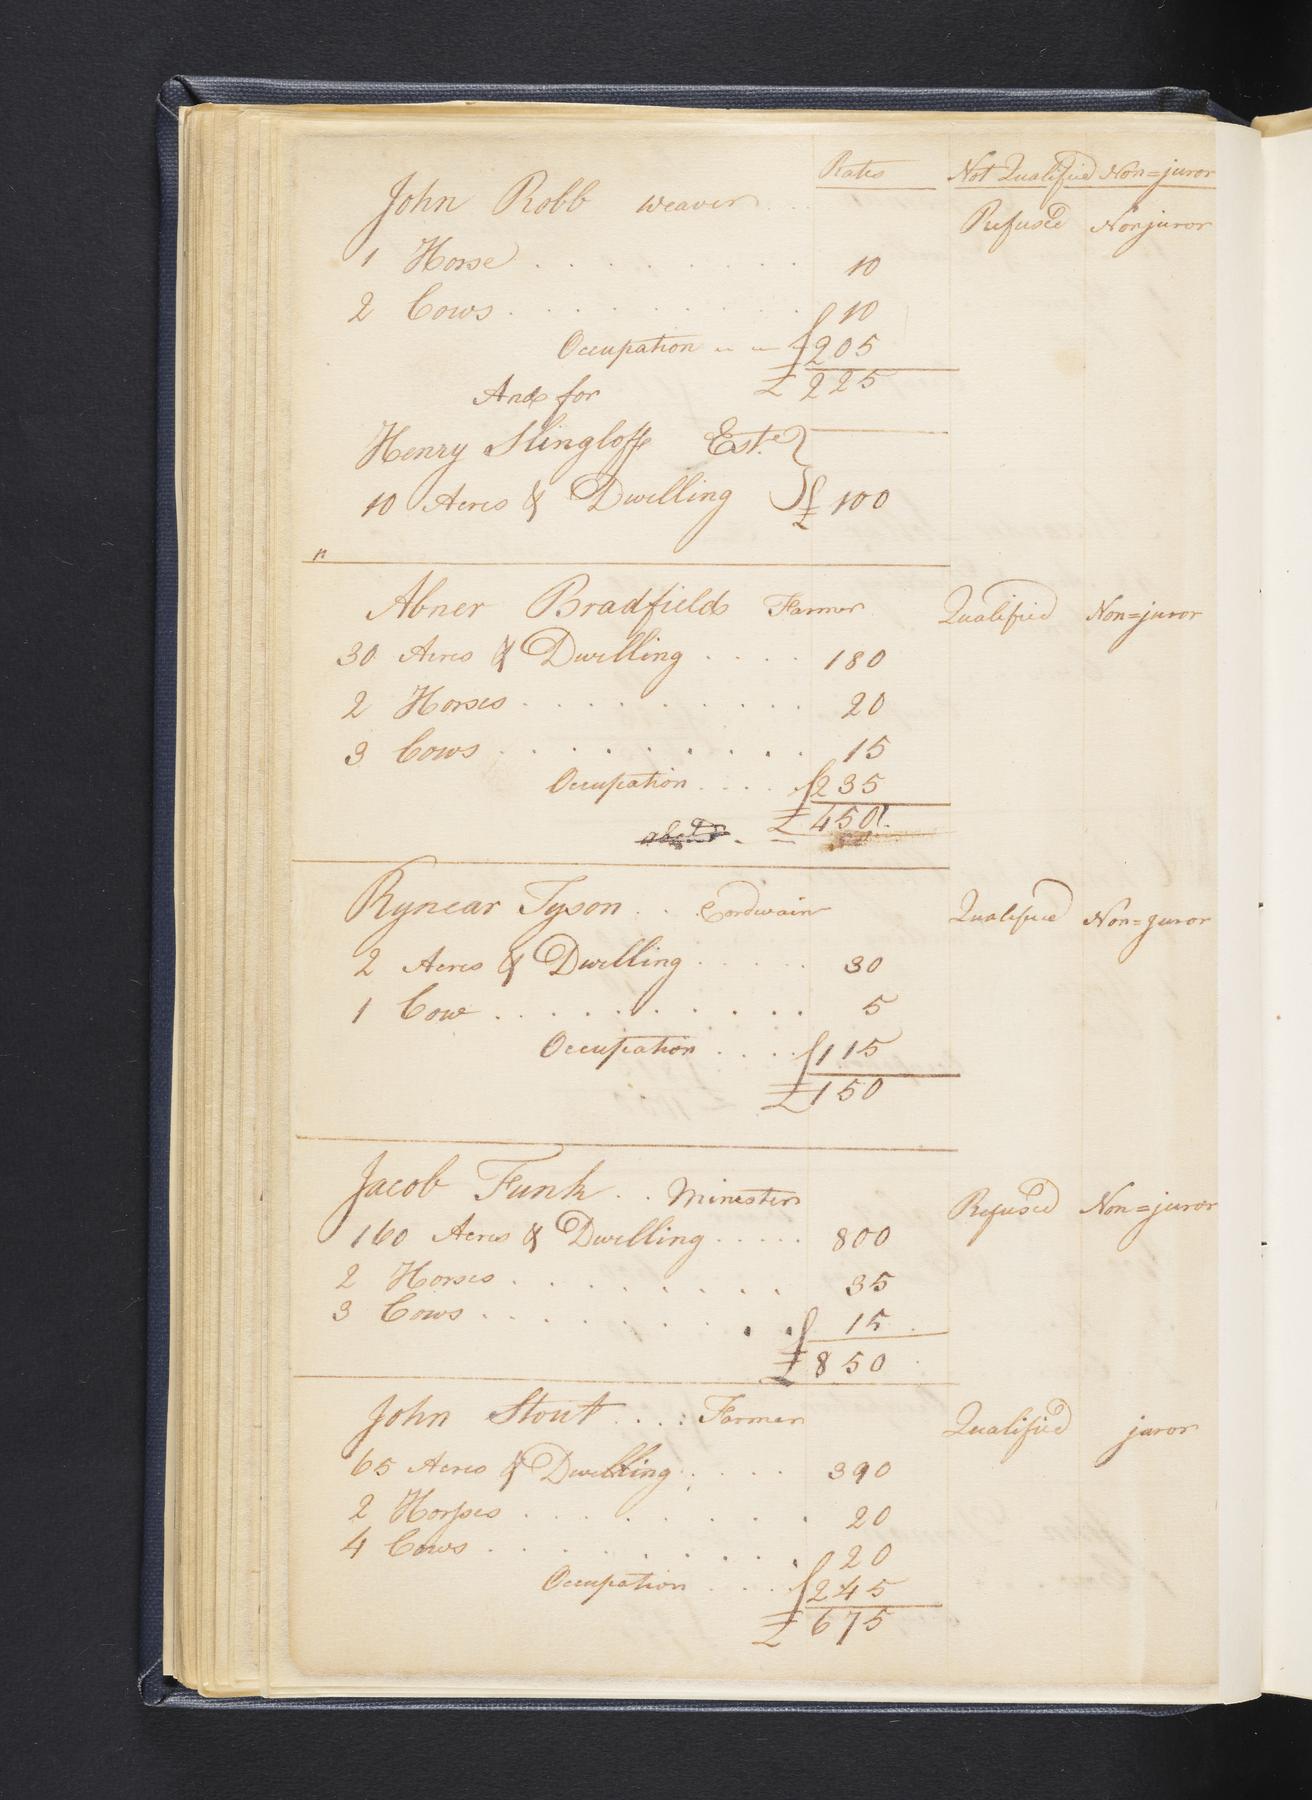 Rates Not Qualified Non=juror
John Robb weaver . . Refused Nonjuror
1 Horse . . . . . . . . 10
2 Cows . . . . . . . . . 10
Occupation 205
£ 225
And for
Henry Slingloff Este.
10 Acres & Dwelling £ 100
"
Abner Bradfield Farmer Qualified Non=juror
30 Acres & Dwelling . . . . 180
2 Horses . . . . . . . . . 20
3 Cows . . . . . . . . . 15
Occupation . . . . 235
£ 450
Rynear Tyson . . Cordwain Qualified Non=juror
2 Acres & Dwelling . . . . . 30
1 Cow . . . . . . . . . . 5
Occupation . . . . 115
£ 150
Jacob Funk . . Minister Refused Non=juror
160 Acres & Dwelling . . . . . 800
2 Horses . . . . . . . . 35
3 Cows . . . . . . . . . 15
£ 850
John Stout . . . : Farmer Qualified juror
65 Acres & Dwelling . . . . 390
2 Horses . . . . . . . . 20
4 Cows . . . . . . . . . 20
Occupation . . . . 245
£ 675